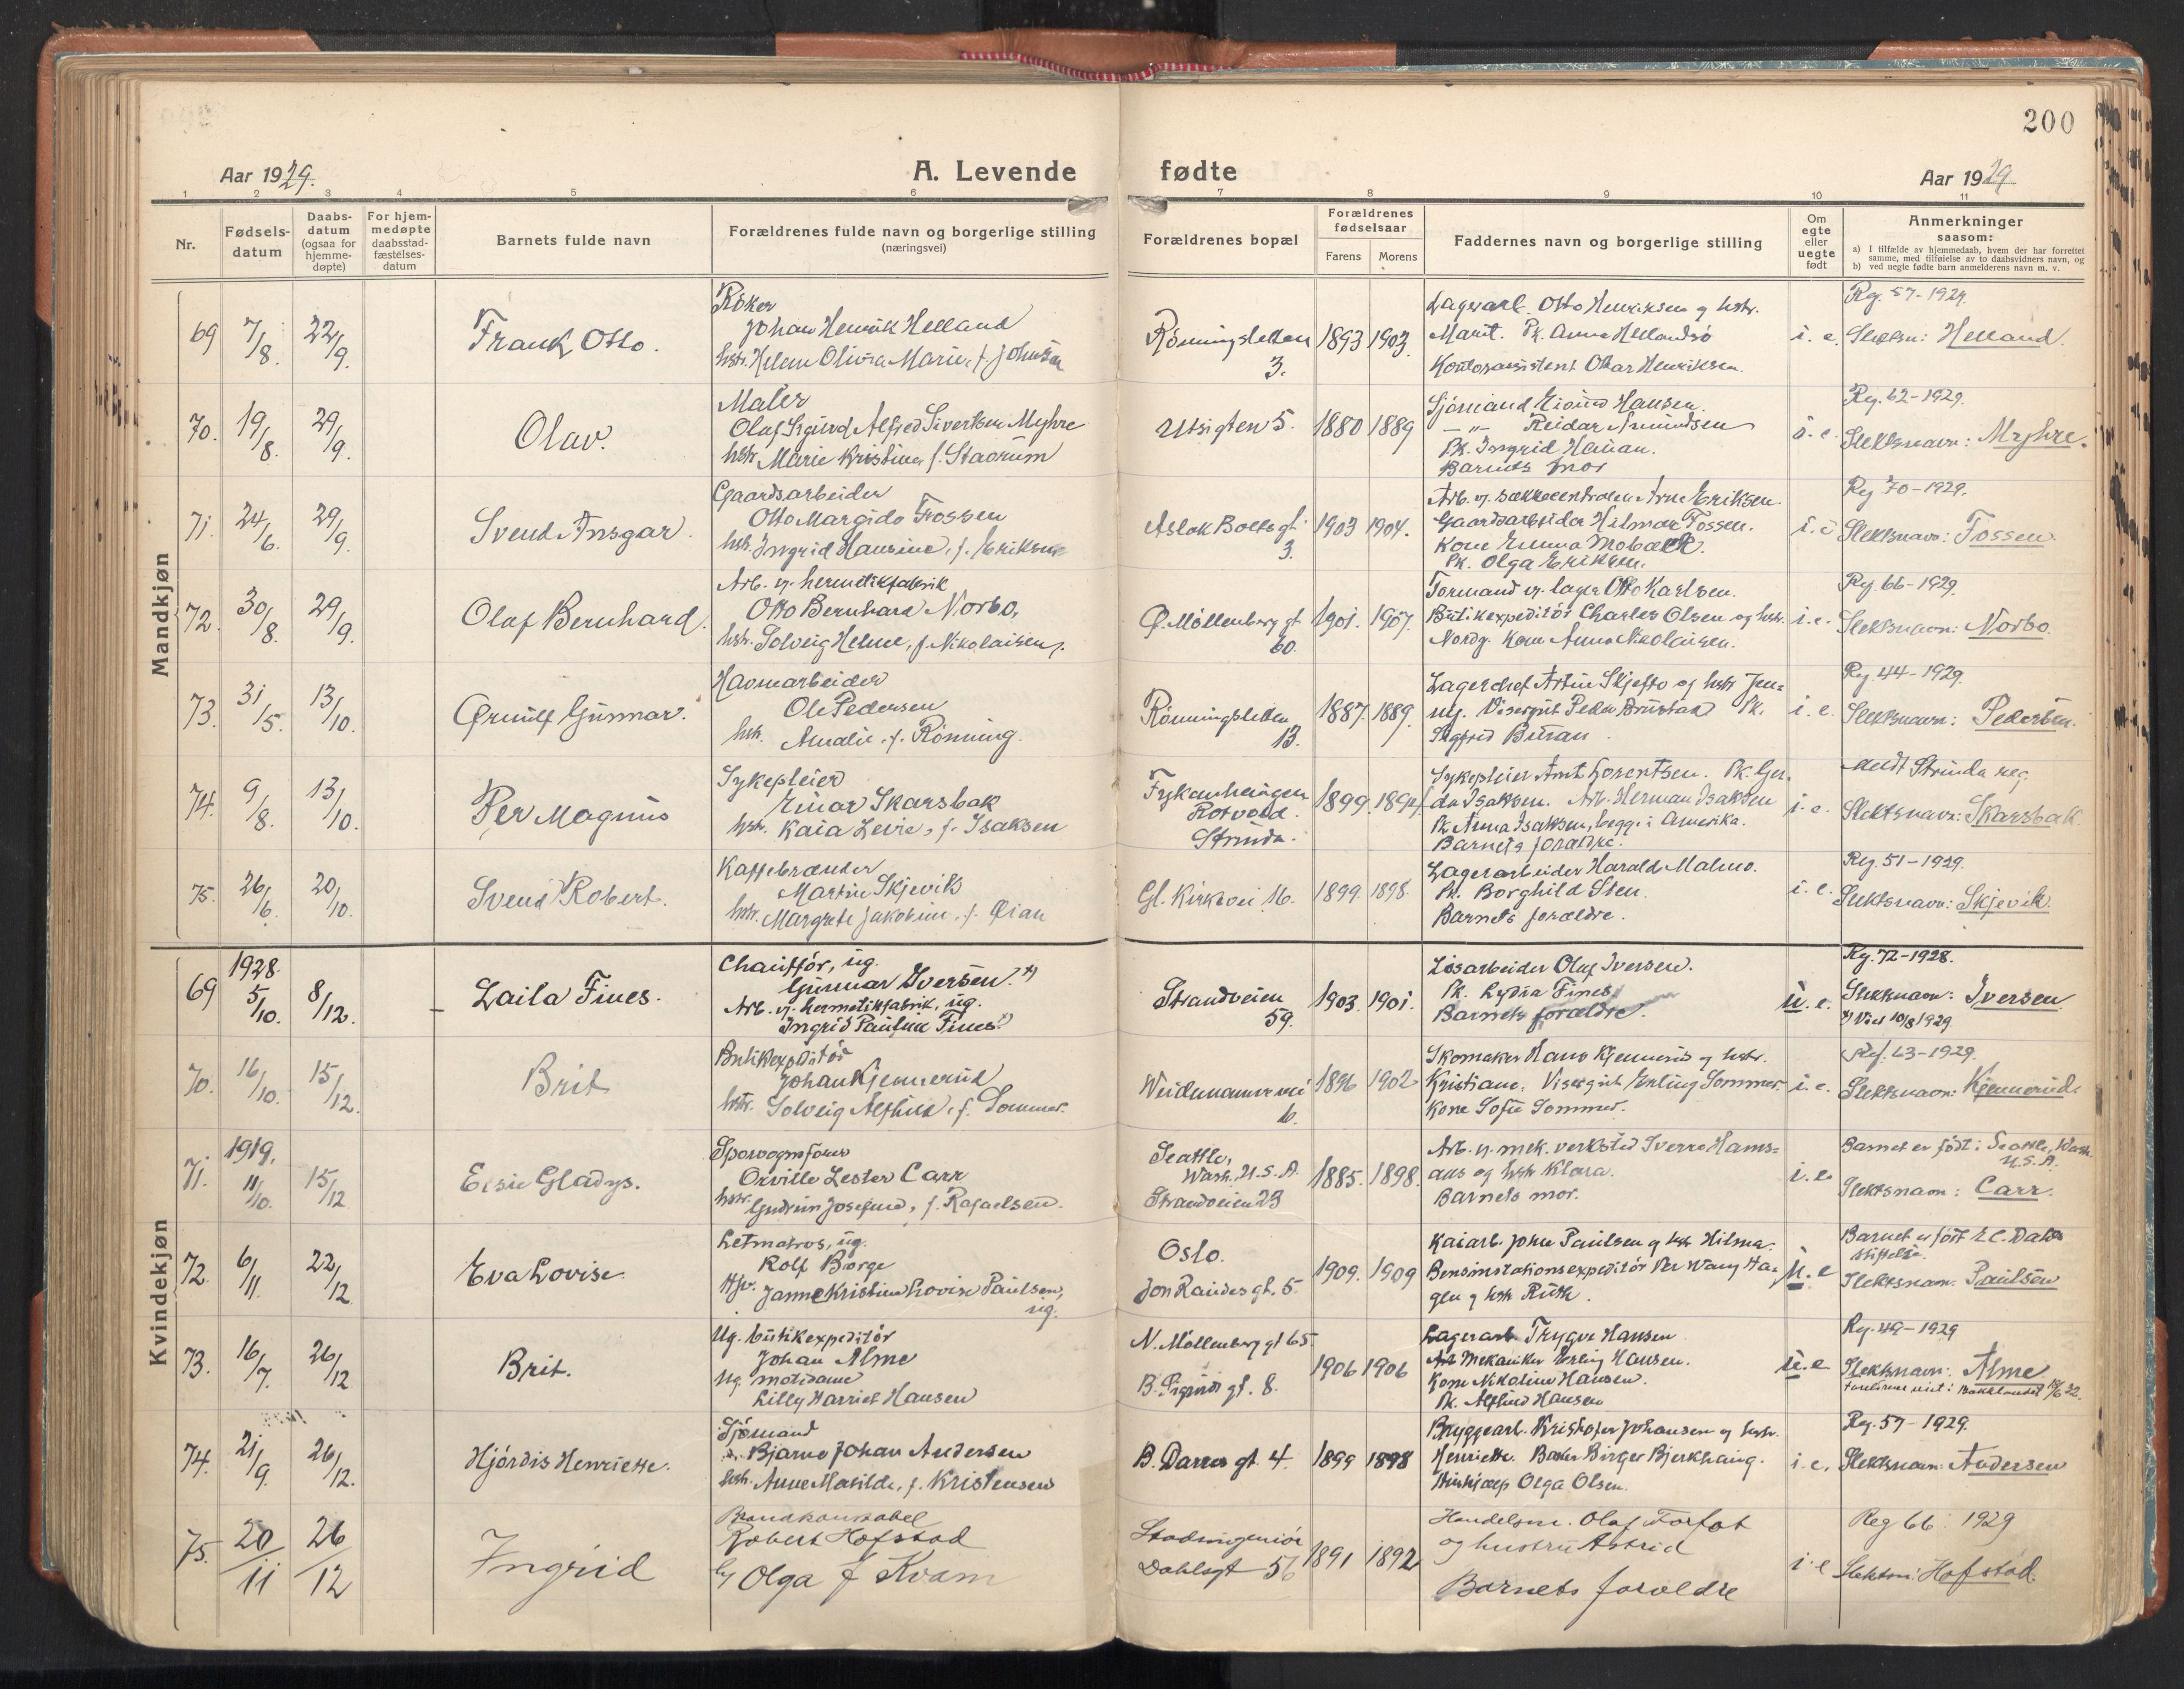 200
Aar 1929.
A. Levende
fødte
Aar 1929
1 2 3 4 5 6 7 8 9 10 11
Nr.
Fødsels-
datum
Daabs-
datum
(ogsaa for
hjemme-
døpte)
For hjem-
medøpte
daabsstad-
fæstelses-
datum
Barnets fulde navn
Forældrenes fulde navn og borgerlige stilling
(næringsvei)
Forældrenes bopæl
Forældrenes
fødselsaar
Farens Morens
Faddernes navn og borgerlige stilling
Om
egte
eller
uegte
født
Anmerkninger
saasom:
a) I tilfælde av hjemmedaab, hvem der har forrettet
samme, med tilføielse av to daabsvidners navn, og
b) ved uegte fødte barn anmelderens navn m. v.
Mandkjøn
69 7/8. 22/9. Frank Otto.
Røker
Johan Henrik Helland
hstr. Helene Olivia Marie, f. Johnsen
Rønningsletten
3.
1893 1903.
Lagerarb. Otto Henriksen og hstr.
Marit. Pk. Anna Hellandsø
Kontorassistent Ottar Henriksen.
i. e.
Reg. 57-1929.
Slektsn: Helland.
70. 19/8. 29/9. Olav.
Maler
Olaf Sigurd Alfred Sivertsen Myhre
hstr. Marie Kristine, f. Staorum
Utsigten 5.
1880 1889
Sjømand Eivind Hansen.
— " — Reidar Amundsen
Pk. Ingrid Hauan.
Barnets mor
i. e.
Reg. 62-1929.
Slektsnavn: Myhre.
71. 24/6. 29/9. Svend Ansgar.
Gaardsarbeider
Otto Margido Fossen
hstr. Ingrid Hansine, f. Eriksen
Aslak Bolts gt.
3.
1903 1904.
Arb. v. sækkecentralen Arne Eriksen.
Gaardsarbeider Hilmar Fossen.
Kone Emma Mobæck.
Pk. Olga Eriksen.
i. e
Reg 70-1929.
Slektsnavn: Fossen.
72. 30/8. 29/9. Olaf Bernhard.
Arb. v. hermetikfabrik
Otto Bernhard Norbo,
hstr. Solveig Helene, f. Nikolaisen.
Ø. Møllenberg gt
60.
1901. 1907.
Formand v. lager Otto Karlsen.
Butikexpeditør Charles Olsen og hstr.
Nordg. Kone Anna Nikolaisen.
i. e.
Reg. 66-1929.
Slektsnavn: Norbo.
73. 31/5. 13/10. Ørnulf Gunnar.
Havnearbeider
Ole Pedersen
hstr. Amalie, f. Rønning.
Rønningsletten
13.
1887. 1889.
Lagerchef Artur Skjefto og hstr Jen=
ny. Visergut Peder Brustad Pk.
Sigfrid Buran.
i. e.
Reg 44-1929.
Slektsnavn: Pedersen.
74. 9/8. 13/10. Per Magnus
Sykepleier
Einar Skarsbak
hstr. Kaia Levie, f. Isaksen
Rotvold.
Strinda.
1899.
Sykepleier Arnt Lorentsen. Pk. Ger-
da Isaksen. Arb. Herman Isaksen
Pk Anna Isaksen, begge i Amerika.
Barnets forældre.
i. e.
Meldt Strinda reg
Slektsnavn: Skarsbak
75. 26/6. 20/10. Svend Robert.
Kaffebrænder
Martin Skjevik
hstr. Margrete Jakobine, f. Øian
Gl. Kirkevei 16.
1899. 1898.
Lagerarbeider Harald Malmo.
Pk. Borghild Sten.
Barnets forældre.
i. e.
Reg. 51-1929.
Slektsnavn: Skjevik.
Kvindekjøn
69 1928. 5/10. 8/12. Laila Fines.
Chauffør, ug.
Gunnar Iversen. x)
Arb. v. hermetikfabrik, ug.
Ingrid Pauline Fines x)
Strandveien
59.
1903. 1901.
Løsarbeider Olaf Iversen.
Pk. Lydia Fines
Barnets forældre.
u. e.
Reg. 72-1928.
Slektsnavn: Iversen
x) Viet 10/8 1929
70. 16/10. 15/12. Brit
Butikexpeditør
Johan Kjennerud
hstr. Solveig Alfhild, f. Sommer.
Weidemannsvei
6.
1896 1902
Skomaker Hans Kjennerud og hstr.
Kristiane. Visergut Erling Sommer.
Kone Sofie Sommer.
i. e.
Reg. 63-1929.
Slektsnavn: Kjennerud.
71. 1919. 11/10. 15/12 Elsie Gladys.
Sporvognsfører
Orville Lester Carr
hstr. Gudrun Josefine, f. Rafaelsen.
Seattle,
Wash., U.S.A.
Strandveien 23
1885. 1898.
Arb. v. mek. verksted Sverre Hams=
aas og hstr Klara.
Barnets mor.
i. e
Barnet er født i Seattle, Wash.
U.S.A.
Slektsnavn: Carr.
72. 6/11. 22/12 Eva Lovise.
Letmatros, ug.
Rolf Borge
Janne Kristine Lovise Paulsen,
ug.
Oslo.
Jon Raudes gt. 5.
1909. 1909
Kaiarb. John Paulsen og hstr Hilma.
Bensinstationsexpeditør Per Wang Ha=
gen og hstr Ruth.
u. e
Barnet er født E.C. Dahls
stiftelse.
Slektsnavn: Paulsen
73. 16/7. 26/12 Brit.
Ug. butikexpeditør
Johan Alme
Ug. motedame
Lilly Harriet Hansen
N. Møllenberg gt 65.
B. Sigurds gt. 8.
1906 1906
Lagerarb. Trygve Hansen
Mekaniker Erling Hansen.
Kone Nikoline Hansen.
Pk. Alfhild Hansen
u. e
Reg. 49-1929
Slektsnavn: Alme
Forældrene viet i Bakklandet 18/6 32.
74. 21/9. 26/12. Hjørdis Henriette.
Sjømand
Bjarne Johan Andersen
hstr. Anne Matilde, f. Kristensen
B. Darres gt 4.
1899 1898
Bryggearb. Kristofer Johansen og hstr.
Henriette. Baker Birger Bjerkhaug.
Olga Olsen.
i. e.
Reg. 57-1929.
Slektsnavn: Andersen
75. 20/11 26/12 Ingrid
Brandkonstabel
Robert Hofstad
Olga f Kvam
Stadsingeniør
Dahlsgt 56
1891 1892
Handelsm. Olaf Forfot
og hustru Astrid
Barnets foreldre
i e
Reg 66 1929
Slektsn: Hofstad